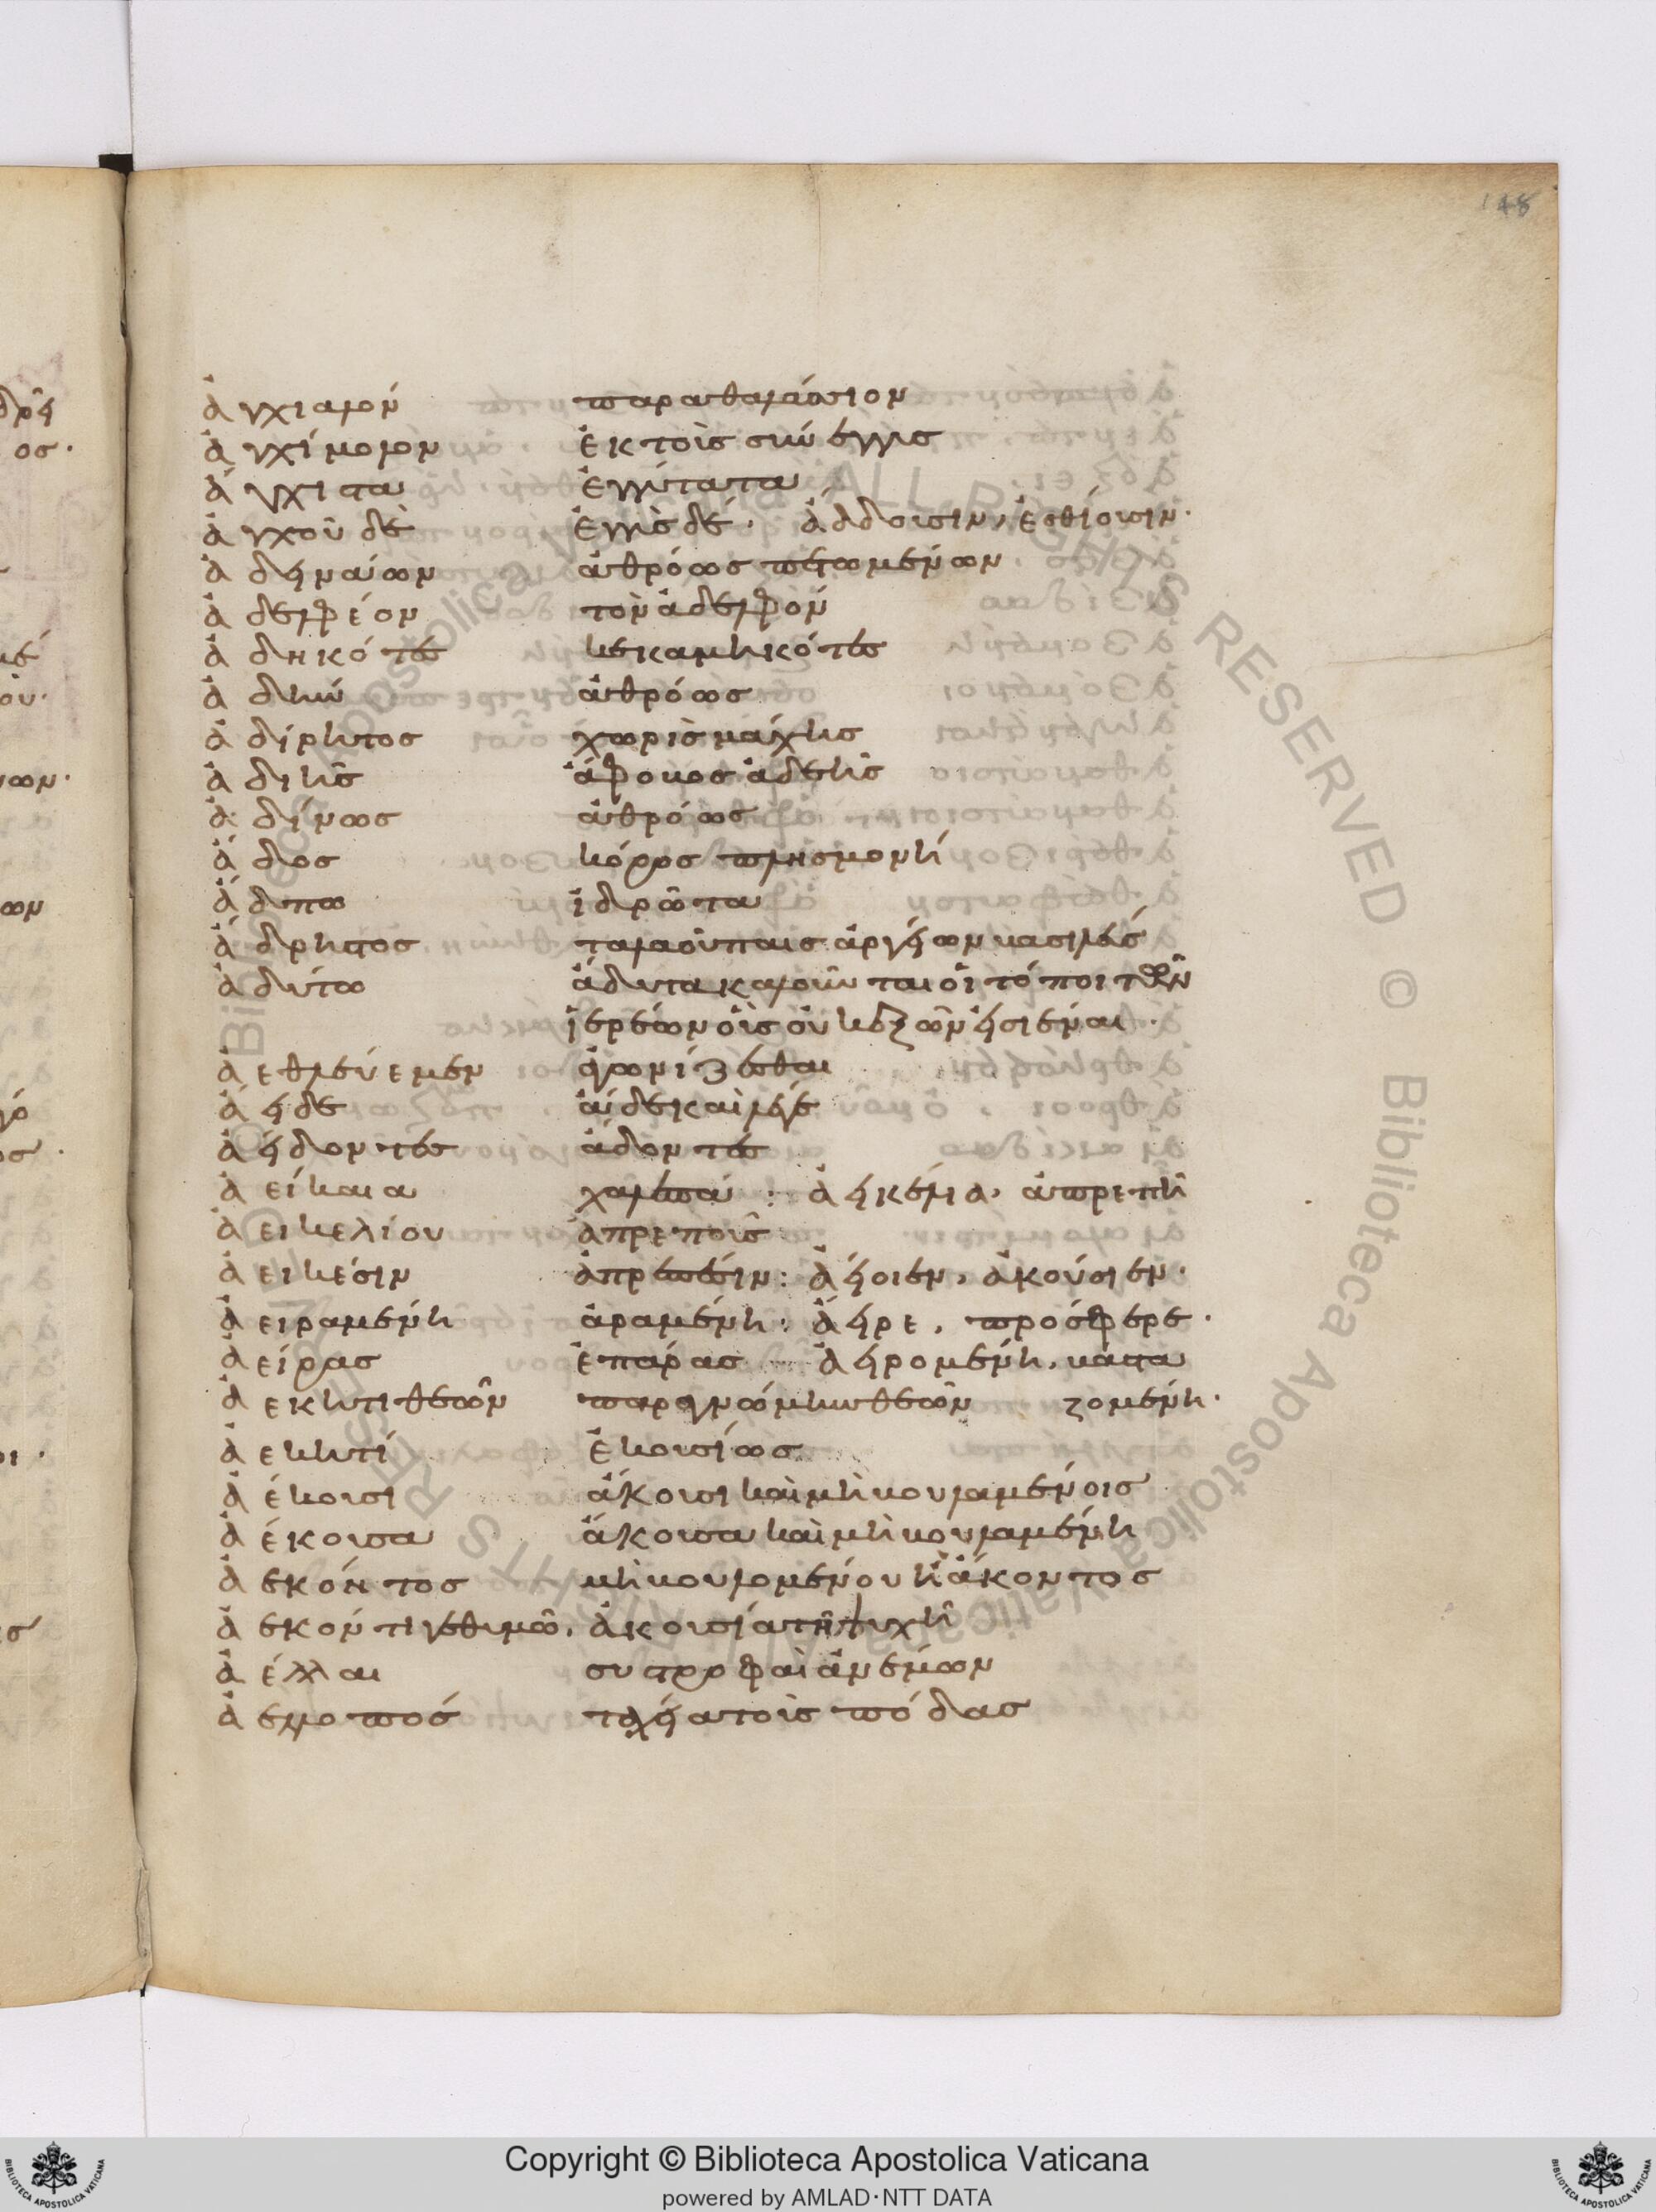 148
ἀγχιαλον παραθαλάσσιον
ἀγχίμολον ἐκ τοῦ σύνεγγυς
ἄγχιστα ἐγγύτατα
ἀγχοῦ δὲ ἐγγὺς δέ· ἄδδουσιν, ἐσθίουσιν·
ἀδηναίων ἀθρόως
ἀδελφεόν τὸν ἀδελφόν
ἀδηκότες κεκμηκότες
ἀδὴν ἀθρόως
ἀδίρητος χωρὶς μάχης
ἀδιὴς ἄφοβος ἀδεὴς
ἀδίνως ἀθρόως
ἄδος κόρος πλησμονή
ἄδυπω ἱδρῶτα
ἄδρηστος ταλαοῦ παῖς ἀργείων βασιλεύς
ἀδύτω ἄδυτα καλοῦνται οἱ τόποι τῶν
ἱερέων οἷς οὐκ ἐξὸν εἰσιέναι·
ἀεθλεύεμεν ἀγωνίζεσθαι
ἄειδε ἄιδε καὶ λέγε
ἀείδοντες ἄδοντες
ἀείκαια χαλεπά : ἀεικέλια, ἀπρεπῆ
ἀεικελίου ἀπρεποῦς
ἀεικέσιν ἀπρεπέσιν : ἀείοιεν, ἀκούσιεν·
ἀειραμένη ἀραμένη : ἄειρε, πρόσφερε·
ἀείρας ἐπάρας ἀειρομένη, βαστα
ἀεκητι θεῶν παρα γνώμην θεῶν ζομένη·
ἀεκητί ἑκουσίως
ἀέκουσι ἄκουσι καὶ μὴ βουλαμένοις
ἀέκουσα ἄκουσα καὶ μὴ βουλαμένη
ἀεκόντος μὴ βουλομένου ἢ ἄκοντος
ἀεκόντί γε θυμῶ, ἀκουσία τῆ ψυχῆ
ἀέλλαι συστροφαὶ ἀνέμων
ἀελλοπος ταχεῖα τοὺς πόδας
Copyright © Biblioteca Apostolica Vaticana
powered by AMLAD·NTT DATA